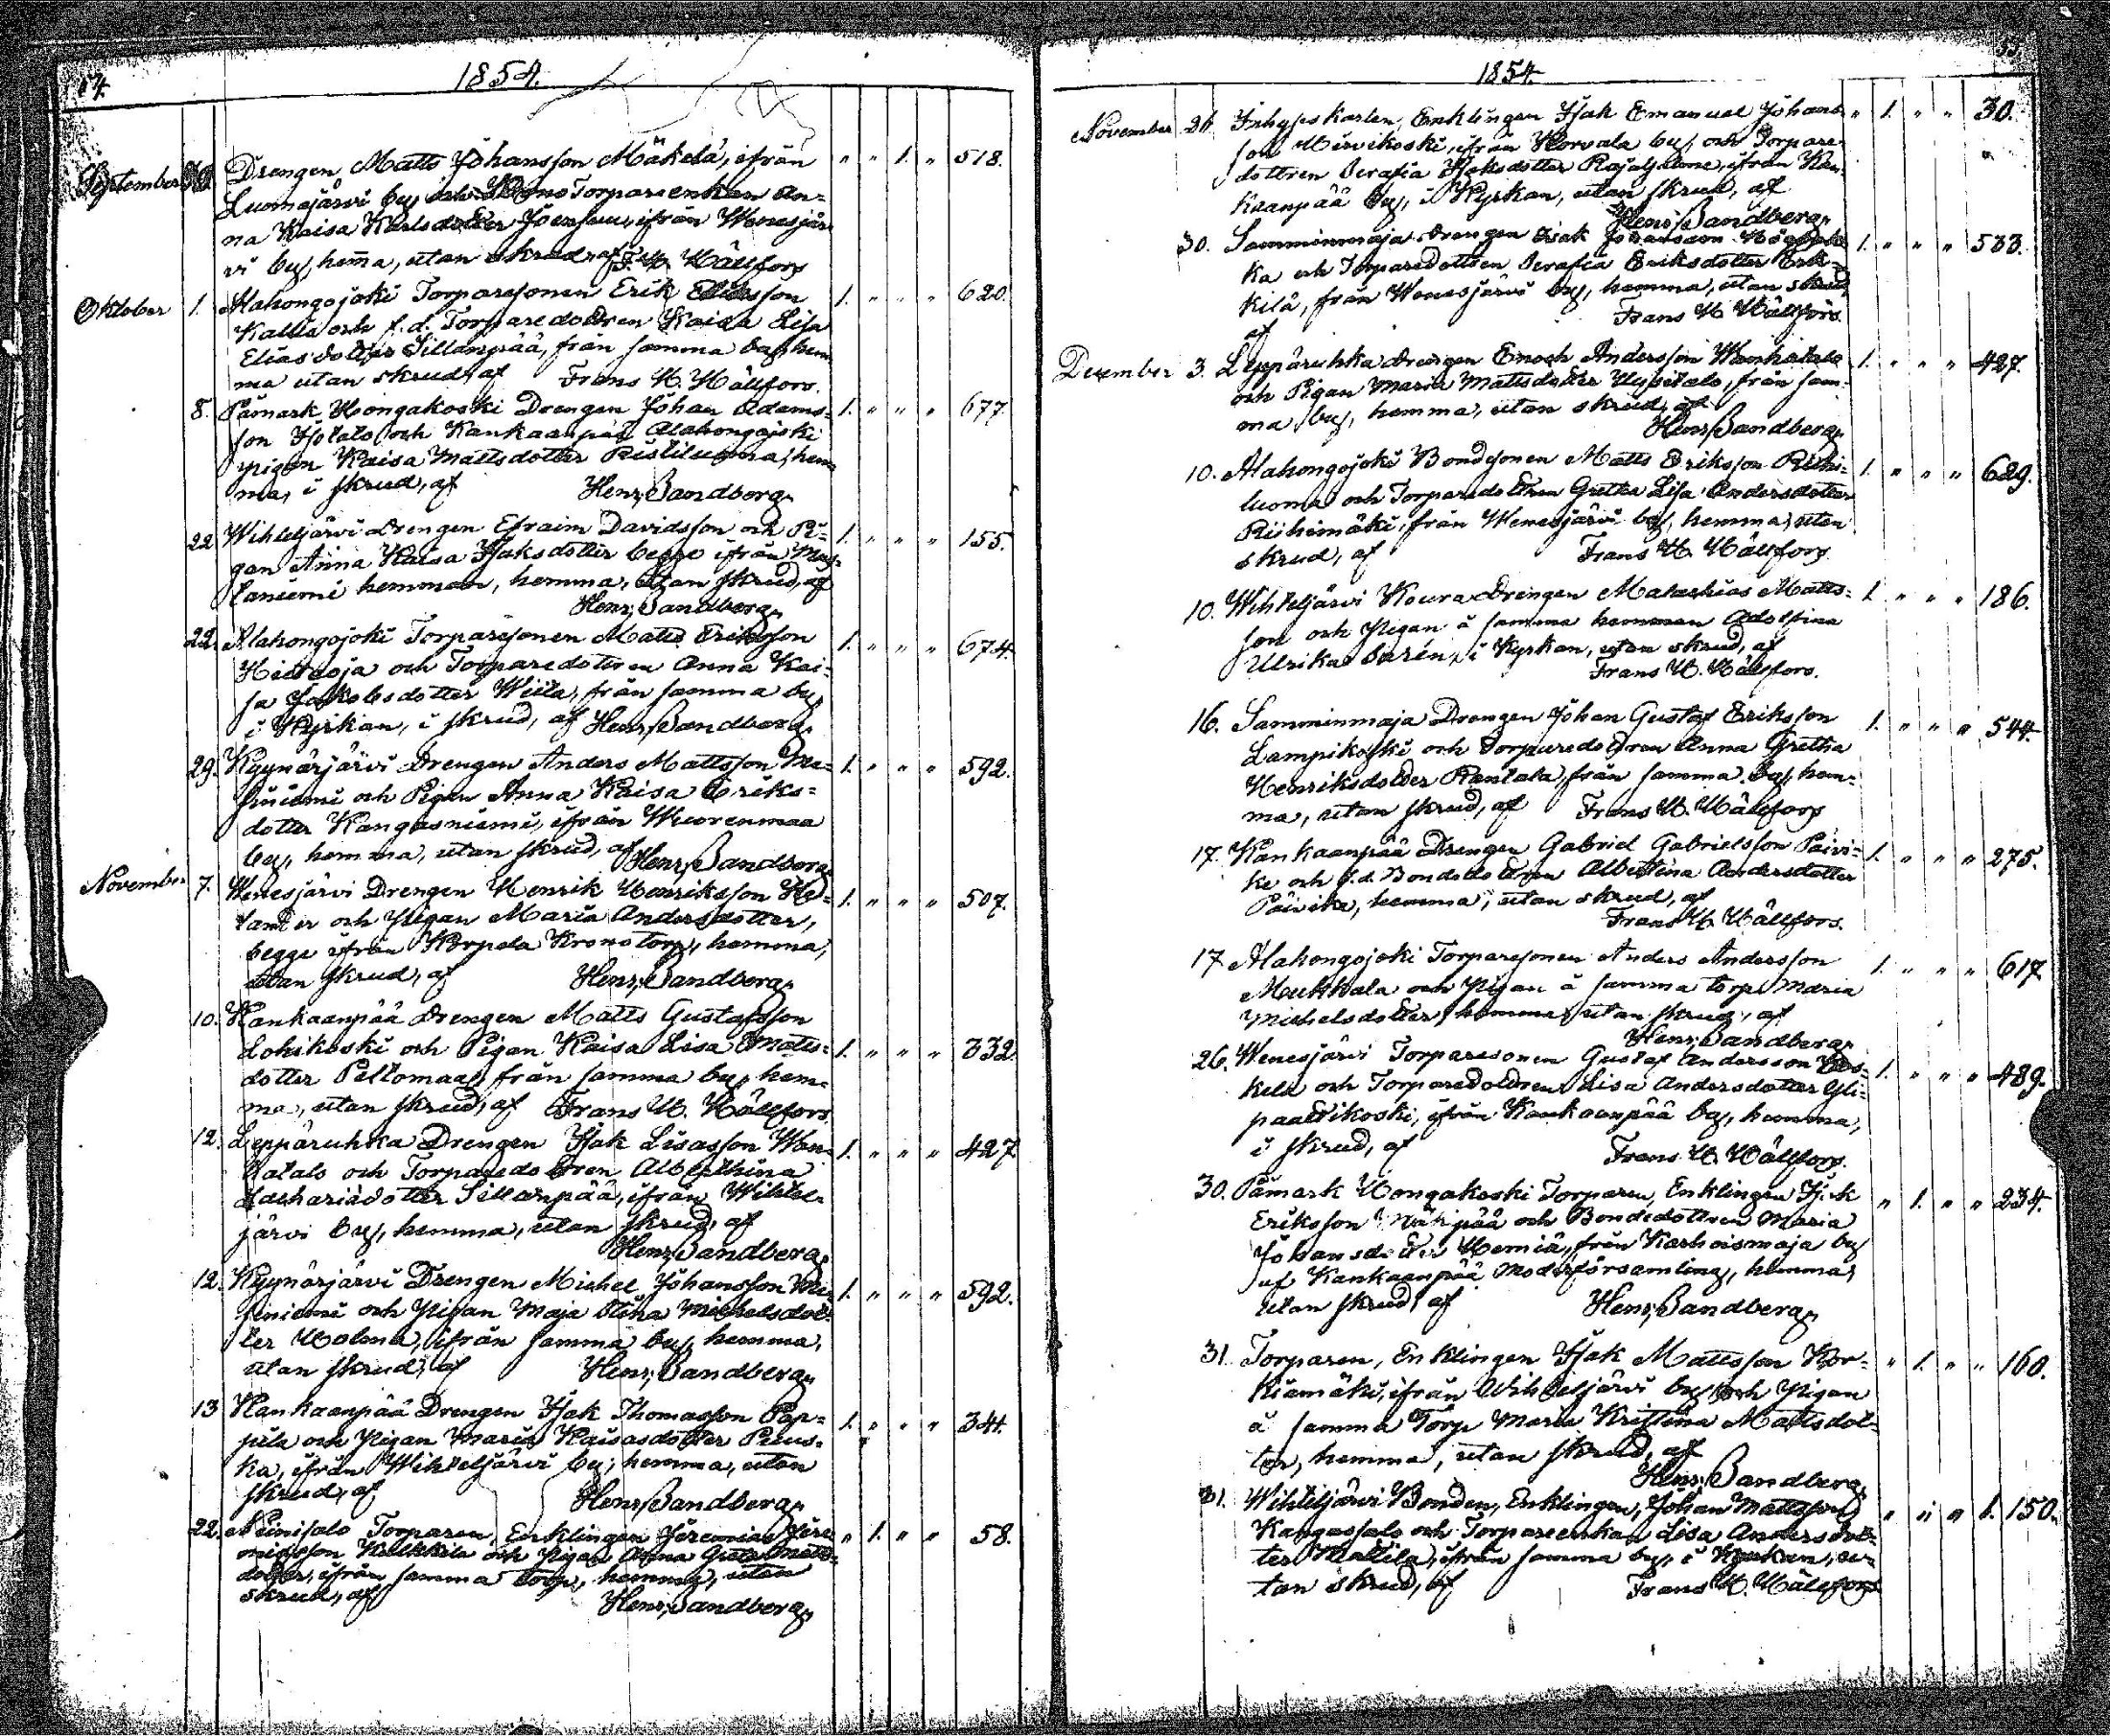 1854.
September
Drengen Matts Johansson Mäkelä, ifrån " " 1. " 518.
Luomajärvi by och Torpareenkan An-
na Kaisa Karlsdotter ifrån Wenesjär-
vi by, hemma, utan skrud, af F. H. Hällfors
Oktober 1. Alahongojoki Torparesonen Erik Eliasson 1. " " " 620.
Kallia och f.d. Torparedottren Kaisa Lisa
Eliasdotter Sillanpää, från samma by, hem-
ma utan skrud, af Frans H. Hällfors.
8. Påmark Hongakoski Drengen Johan Adams- 1. " " " 677.
son och Kankaanpää Alahongojoki
pigan Kaisa Mattsdotter Ristiluoma, hem-
ma, i skrud, af Henr. Sandberg.
22. Wihteljärvi Drengen Efraim Davidsson och Pi- 1. " " " 155.
gan Anna Kaisa Isaksdotter begge ifrån
taniemi hemman, hemma, utan skrud, af
Henr. Sandberg.
22. Alahongojoki Torparesonen Matts Eriksson 1. " " " 674.
Hietaoja och Torparedottren Anna Kai-
sa Jakobsdotter Wiila, från samma by,
i Kyrkan, i skrud, af Henr. Sandberg.
29. Kyynärjärvi Drengen Anders Mattsson Me- 1. " " " 592.
siniemi och Pigan Anna Kaisa Eriks-
dotter Kangasniemi, ifrån Wuorenmaa
by, hemma, utan skrud, af Henr. Sandberg.
November 7. Wenesjärvi Drengen Henrik Henriksson He- 1. " " " 507.
lander och Pigan Maria Andersdotter,
begge ifrån Korpela Kronotorp, hemma,
utan skrud, af Henr. Sandberg.
10. Kankaanpää Drengen Matts Gustafsson
Lohikoski och Pigan Kaisa Lisa Matts- 1. " " " 332.
dotter Peltomaa, från samma by, hem-
ma, utan skrud, af Frans H. Hällfors.
12. Leppäruhka Drengen Isak Lisasson Wan- 1. " " " 427.
hatalo och Torparedottren Albertina
Zachariasdotter Sillanpää, ifrån Wihtel-
järvi by, hemma, utan skrud, af
Henr. Sandberg.
12. Kyynärjärvi Drengen Michel Johansson Me- 1. " " " 592.
siniemi och Pigan Maja Stina Michelsdot-
ter Holma, ifrån samma by, hemma,
utan skrud, af Henr. Sandberg.
13 Kankaanpää Drengen Isak Thomasson Pap- 1. " " " 344.
pila och Pigan Maria Kaisasdotter Puus-
ka, ifrån Wihteljärvi by, hemma, utan
skrud, af Henr. Sandberg.
22. Niinisalo Torparen, Enklingen Jeremias Jere- " 1. " " 58.
miasson och Pigan Anna Greta Matts-
dotter, ifrån samma Torp, hemma, utan
skrud, af Henr. Sandberg.
1854.
November 26. Inhyseskarlen, Enklingen Isak Emanuel Johans- " 1. " " 30.
son Mirvikoski, ifrån Korvala by, och Torpare-
dottren Serafia Isaksdotter ifrån Kan-
kaanpää by, i Kyrkan, utan skrud, af
Henr. Sandberg.
30. Samminmaja Drengen Isak Johansson 1. " " " 533.
ka och Torparedottren Serafia Eriksdotter Erk-
kilä, från Wenesjärvi by, hemma, utan skrud,
af Frans H. Hällfors.
December 3. Leppäruhka Drengen Enoch Andersson Wanhatalo 1. " " " 427.
och Pigan Maria Mattsdotter Uusitalo, från sam-
ma by, hemma, utan skrud, af
Henr. Sandberg.
10. Alahongojoki Bondesonen Matts Eriksson 1. " " " 629.
luoma och Torparedottren Gretha Lisa Andersdotter
Riihimäki, från Wenesjärvi by, hemma, utan
skrud, af Frans H. Hällfors.
10. Wihteljärvi Koura Drengen Malachias Matts- 1. " " " 186.
son och Pigan å samma hemman Adolfina
Ulrika i Kyrkan, utan skrud, af
Frans H. Hällfors.
16. Samminmaja Drengen Johan Gustaf Eriksson 1. " " " 544.
Lampikoski och Torparedottren Anna Gretha
Henriksdotter Rantala, från samma by, hem-
ma, utan skrud, af Frans H. Hällfors
17. Kankaanpää Drengen Gabriel Gabrielsson Päivi- 1. " " " 275.
ke och f.d. Bondedottren Albertina Andersdotter
Päivike, hemma, utan skrud, af
Frans H. Hällfors.
17 Alahongojoki Torparesonen Anders Andersson 1. " " " 617.
Mukkala och Pigan å samma torp Maria
Michelsdotter, hemma, utan skrud, af
Henr. Sandberg.
26. Wenesjärvi Torparesonen Gustaf Andersson 1. " " " 489.
kelä och Torparedottren Lisa Andersdotter Yli-
paattikoski, ifrån Kankaanpää by, hemma,
i skrud, af Frans H. Hällfors.
30. Påmark Hongakoski Torparen, Enklingen Isak " 1. " " 234.
Eriksson och Bondedottren Maria
Johansdotter Hemiä, från Karhoismaja by
af Kankaanpää Moderförsamling, hemma,
utan skrud, af Henr. Sandberg.
31. Torparen, Enklingen Isak Mattsson Kor- " 1. " " 160.
kiamäki, ifrån Wihteljärvi by och Pigan
å samma Torp Maria Kristina Mattsdot-
ter, hemma, utan skrud, af
Henr. Sandberg.
31. Wihteljärvi Bonden, Enklingen, Johan Mattsson " " " 1. 150.
Kangassalo och Torpareenkan Lisa Andersdot-
ter Mattila, ifrån samma by, i Kyrkan, u-
tan skrud, af Frans H. Hällfors